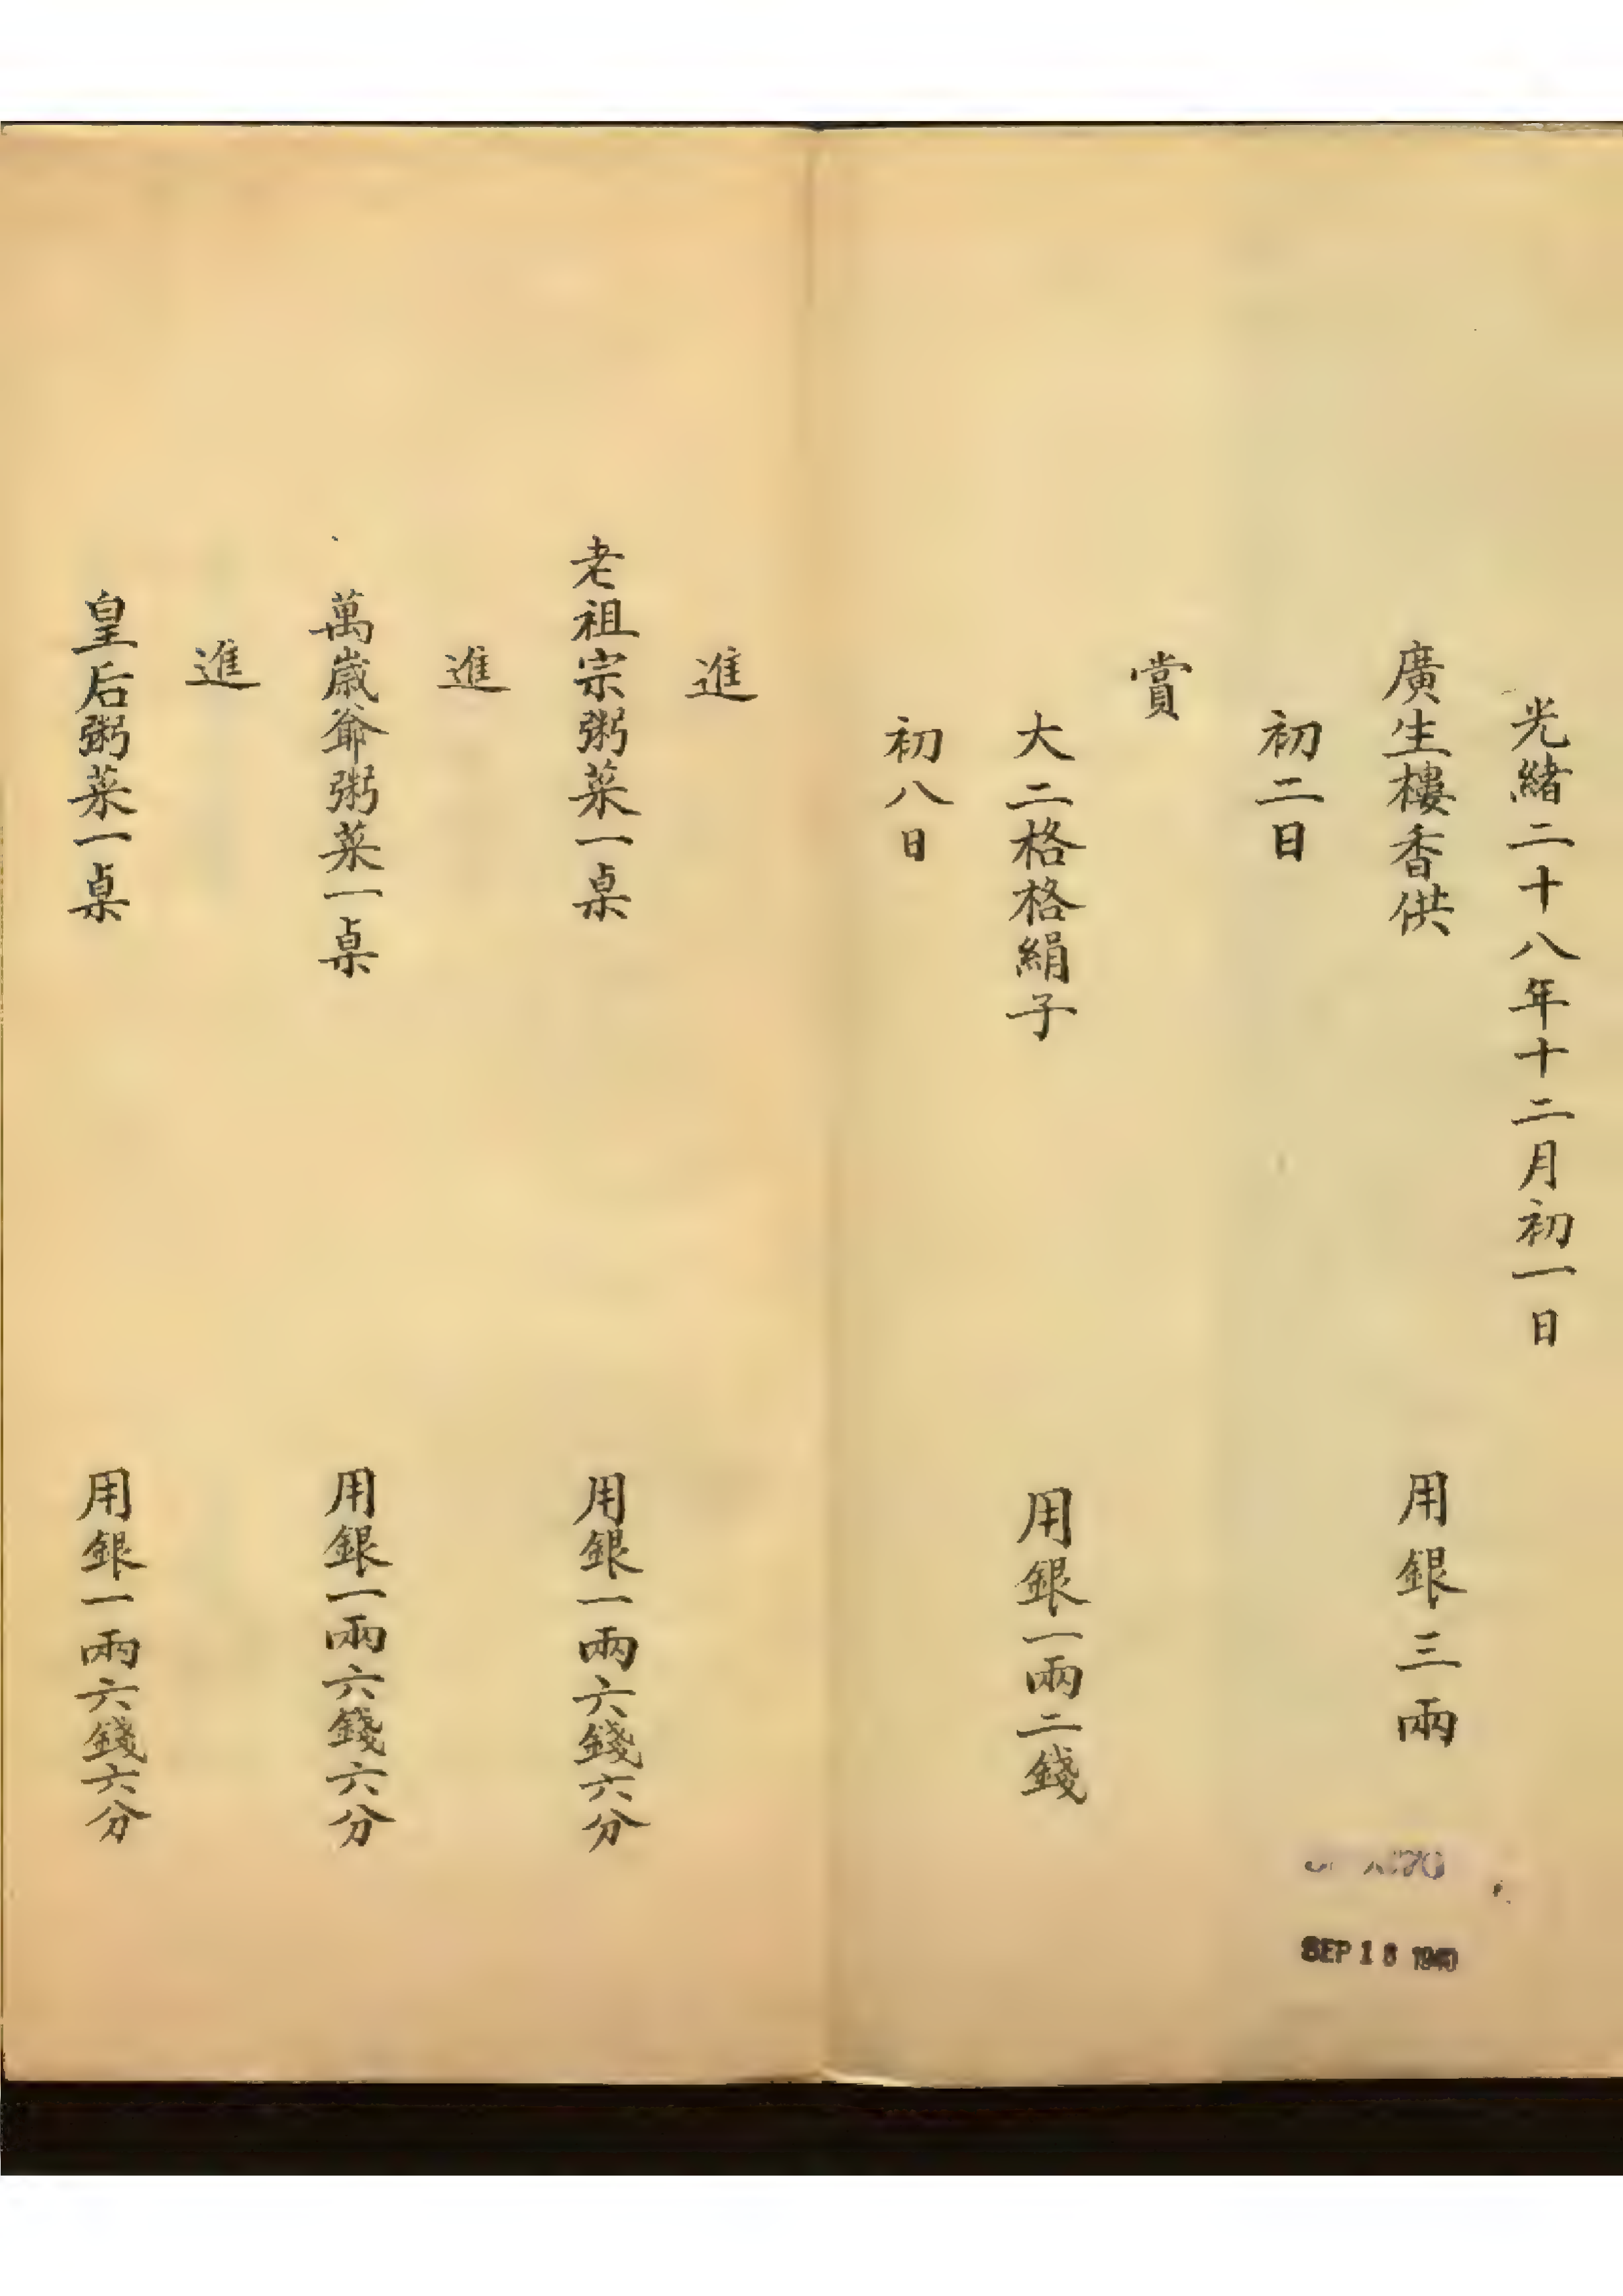 光緒二十八年十二月初一日
廣生樓香供 用銀三兩
初二日
賞
大二格格絹子 用銀一兩二錢
初八日
進
老祖宗粥菜一桌 用銀一兩六錢六分
進
萬歲爺粥菜一桌 用銀一兩六錢六分
進
皇后粥菜一桌 用銀一兩六錢六分
SEP 18 1940